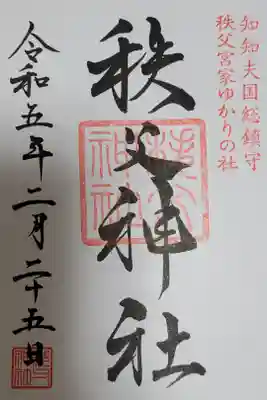 知知夫国総鎮守
秩父宮家ゆかりの社
秩父神社
令和五年二月二十五日